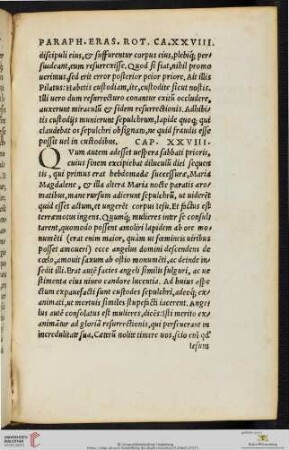 PARAPH. ERAS. ROT. CA. XXVIII.
discipuli eius, & suffurentur corpus eius, plebiq́; per
suadeant, eum resurrexisse. Quod si fiat, nihil promo
uerimus, sed erit error posterior peior priore. Ait illis
Pilatus: Habetis custodiam, ite, custodite sicut nostis.
Illi uero dum resurrecturo conantur exitũ occludere,
auxerunt miraculũ & fidem resurrectionis. Adhibi
tis custodijs munierunt sepulchrum, lapide quoq; qui
claudebat os sepulchri obsignato, ne quid fraudis esse
posset uel in custodibus. CAP. XXVIII.
QVum autem adesset uespera sabbati prioris,
cuius finem excipiebat diluculũ diei sequen
tis, qui primus erat hebdomadæ successuræ, Maria
Magdalene, & illa altera Maria nocte paratis aro
matibus, mane rursum adierunt sepulchrũ, ut uiderẽt
quid esset actum, & ungerẽt corpus Iesu. Et factus est
terræmotus ingens. Quumq́; mulieres inter se consul
tarent, quomodo possent amoliri lapidem ab ore mo
numẽti (erat enim maior, quàm ut fœmineis uiribus
posset amoueri) ecce angelus domini descendens de
cœlo, amouit saxum ab ostio monumẽti, ac deinde in
sedit illi. Erat autẽ facies angeli similis fulguri, ac ue
stimenta eius niueo candore lucentia. Ad huius aspe
ctum expauefacti sunt custodes sepulchri, adeoq́; ex
animati, ut mortuis similes stupefacti iacerent. Ange
lus autẽ consolatus est mulieres, dicẽs: Isti merito ex
animãtur ad gloriã resurrectionis, qui perseuerant in
incredulitate sua, Cæterũ nolite timere uos, scio em̃ qđ
Iesum